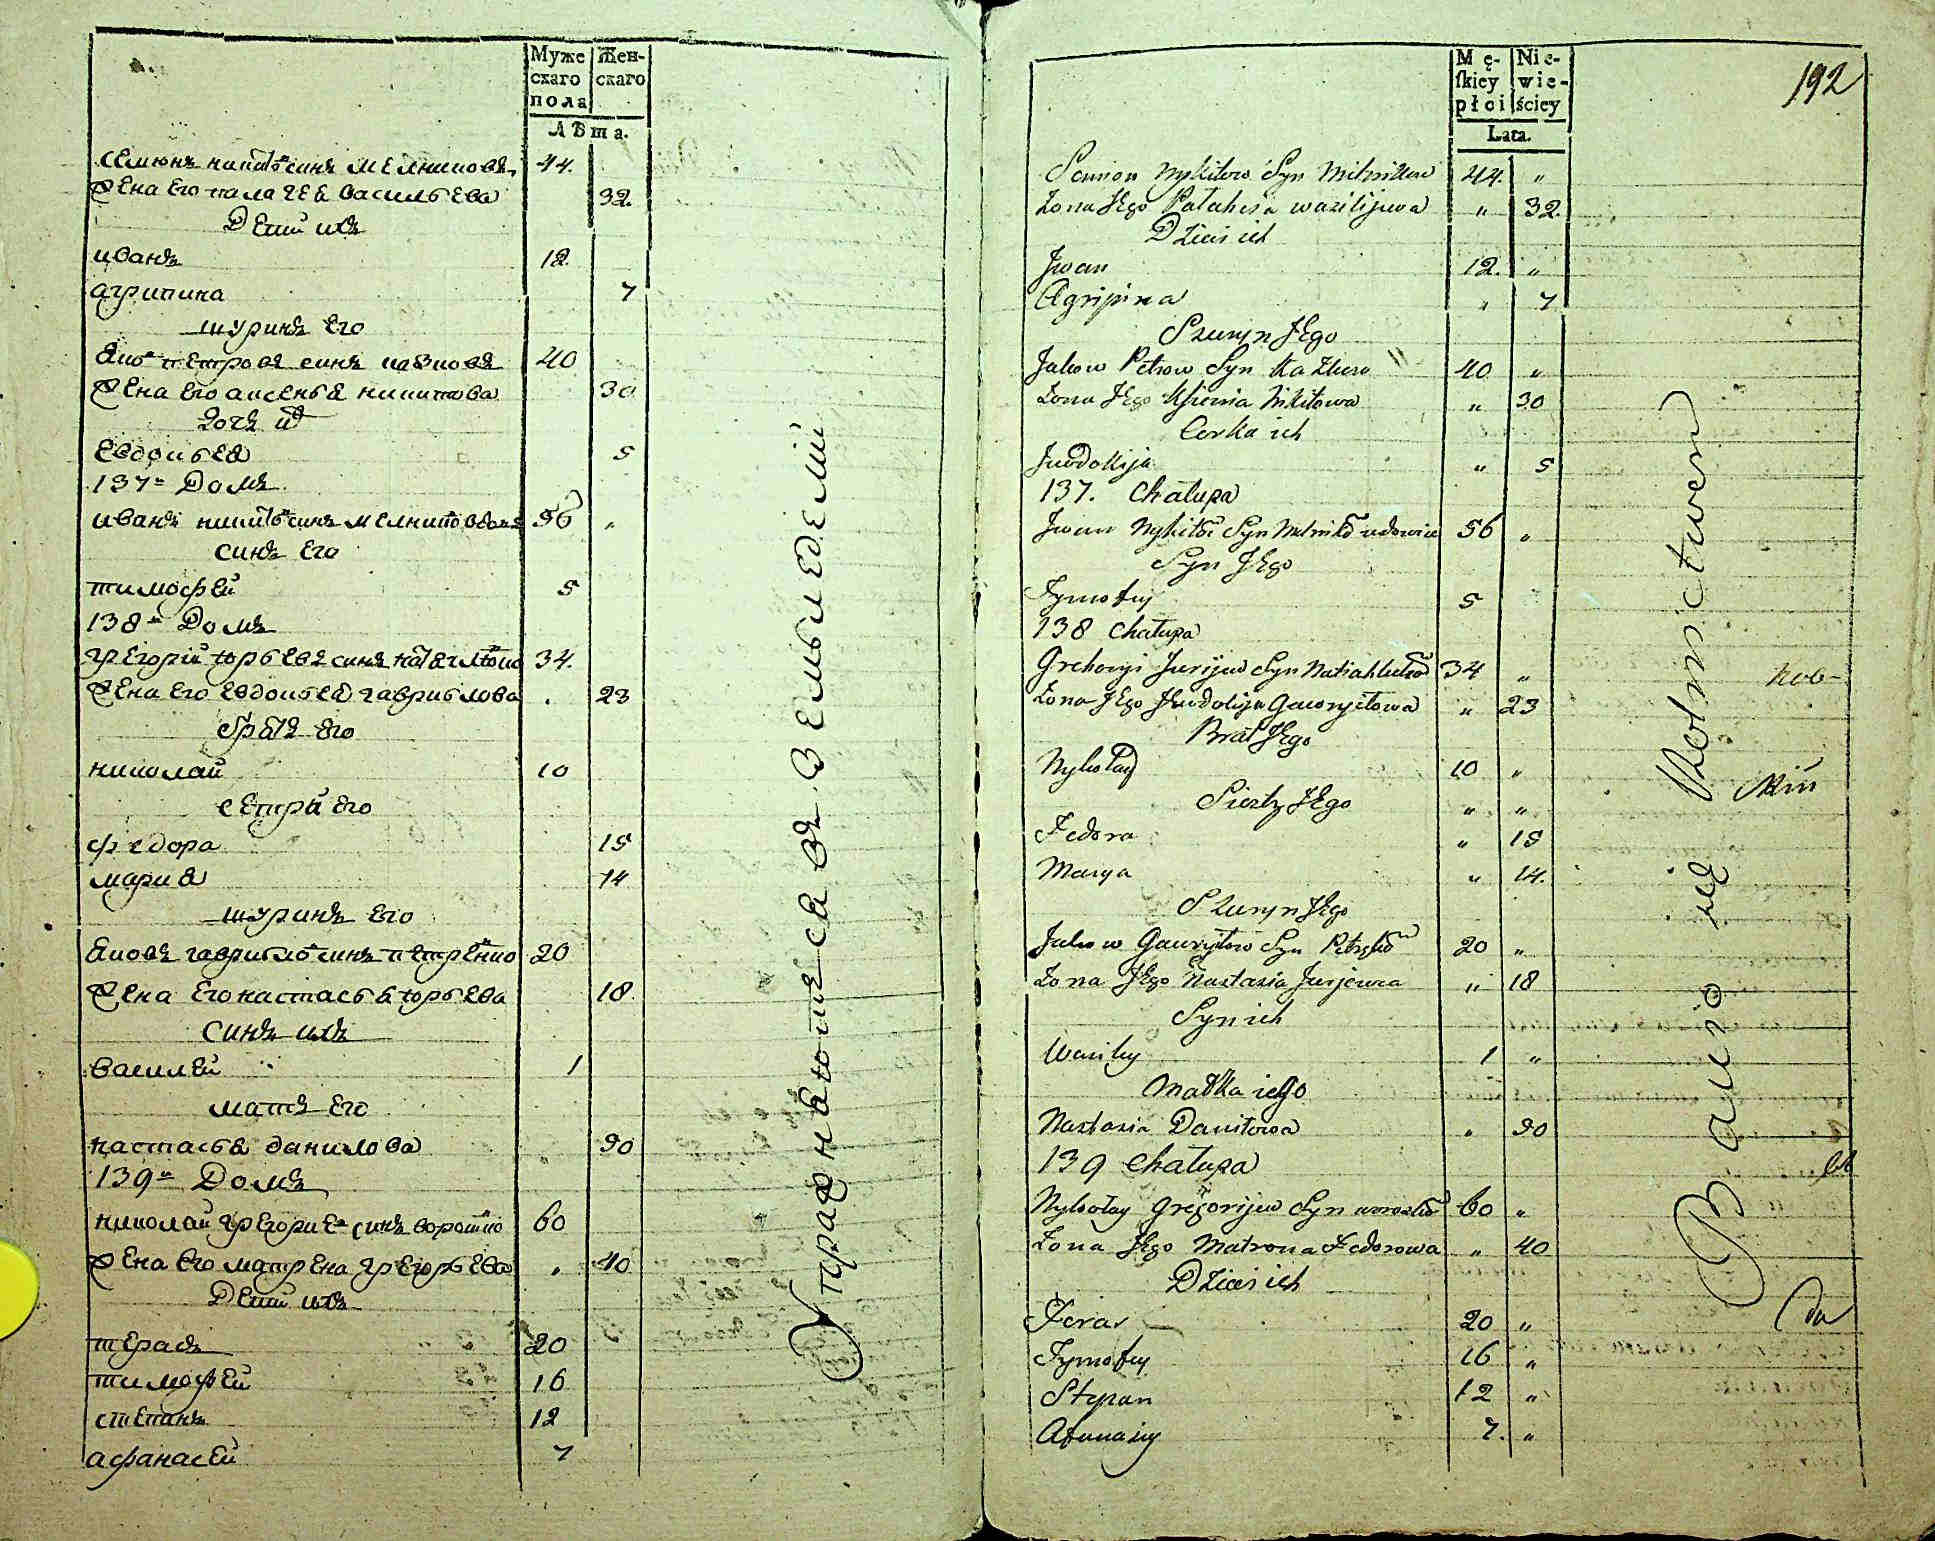 Муже Жен-
скаго скаго
пола
Лѣта.
семюнъ никитъ синъ мелниковъ 44.
жена его палагея васильева 32.
Дети ихъ
иванъ 12.
агрипина 7
шуринъ его
яковъ петровъ синъ казковъ 40
жена его аксенья никитова 30
дочь ихъ
евдокья 5
137й Домъ
иванъ никитъ синъ мелниковъ 56 „
синъ его
тимофей 5
138й Домъ
григорій юрьевъ синъ 34.
жена его евдокья гаврилова . 23
братъ его
николай 10
сестри его
федора 15
мария 14
шуринъ его
яковъ гаврилов синъ петренко 20
жена его настасья юрьева 18.
синъ ихъ
василей 1
мать его
настасья данилова „ 90
139й Домъ
николай григорие синъ ворошко 60
жена его матрена григорьева „ 40
Дети ихъ
терасъ 20
тимофей 16
степанъ 12
афанасей 7
Упражняются въ земледелій
192
Mę- Nie-
skiey wie-
płci ściey
Lata.
Semion Nykitow Syn Milnikow 44. „
Żona Jego Palaheia wasilijewa „ 32.
Dzieci ich
Jwan 12. „
Agripina „ 7
Szuryn Jego
Jakow Petrow Syn Kazkow 40 „
Żona Jego Xsienia Nikitowa „ 30
Corka ich
Jwdokija „ 5
137. Chałupa
Jwan Nykitow Syn Melniko wdowiec 56 „
Syn Jego
Tymofiy 5
138 Chałupa
Grehoryi Jurijew Syn 34 „
Żona Jego Jewdokija Gawryłowa „ 23
Brat Jego
Nykołay 10 „
Siestry Jego „ „
Fedora „ 15
Marya „ 14.
Szuryn Jego
Jakow Gawryłow Syn Petryko 20 „
Żona Jego Nastasia Jurjewa „ 18
Syn ich
Wasiley 1 „
Matka iego
Nastasia Daniłowa „ 90
139 Chałupa
Nykołay Gregorijew Syn 60 „
Żona Jego Matrona Fedorowa „ 40
Dzieci ich
Teras 20 „
Tymofiy 16 „
Stepan 12 „
Afanasiy 7. „
Bawią się Rolnictwem